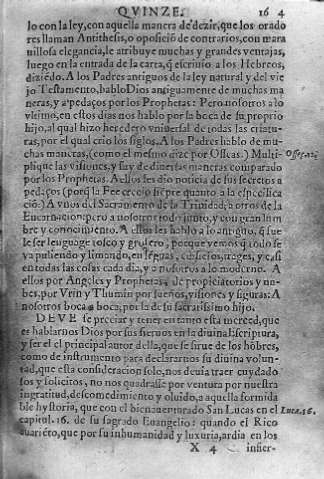 QVINZE. 164
lo con la ley, con aquella manera de dezir, que los orado
res llaman Antithesis, o oposiciõ de contrarios, con mara
uillosa elegancia, le atribuye muchas y grandes ventajas,
luego en la entrada de la carta, q̃ escriuio a los Hebreos,
diziẽdo. A los Padres antiguos de la ley natural y del vie
jo Testamento, hablo Dios antiguamente de muchas ma
neras, y a pedaços por los Prophetas: Pero nosotros a lo
vltimo, en estos dias nos hablo por la boca de su proprio
hijo, al qual hizo heredero vniuersal de todas las criatu-
ras, por el qual crio los siglos. A los Padres hablo de mu-
chas maneras, (como el mesmo dize por Osseas.) Multi- Osseas.
plique las visiones, y fuy de diuersas maneras comparado
por los Prophetas. A ellos les dio noticia de sus secretos a
pedaços (porq̃ la Fee crecio siẽpre quanto a la especifica
ciõ.) A vnos del Sacramento de la Trinidad, a otros de la
Encarnacion: pero a nosotros todo junto, y con gran lum
bre y conocimiento. A ellos les hablo a lo antiguo, q̃ sue
le ser lenguage tosco y grosero, porque vemos q̃ todo se
va puliendo y limando, en lẽguas, edificios, trages, y casi
en todas las cosas cada dia, y a nosotros a lo moderno. A
ellos por Angeles y Prophetas, de propiciatorios y nu-
bes, por Vrin y Thumin por sueños, visiones y figuras: A
nosotros boca a boca, por la de su sacratissimo hijo.
DEVE se preciar y tener en tanto esta merced, que
es hablarnos Dios por sus sieruos en la diuina escriptura,
y ser el el principal autor della, que se sirue de los hõbres,
como de instrumento para declararnos su diuina volun-
tad, que esta consideracion solo, nos deuia traer cuydado
sos y solicitos, no nos quadrasse por ventura por nuestra
ingratitud, desconocimiento y oluido, a aquella formida
ble hystoria, que con el bienauenturado San Lucas en el Luca. 16.
capitul. 16. de su sagrado Euangelio: quando el Rico
auariẽto, que por su inhumanidad y luxuria, ardia en los
X 4 infier-